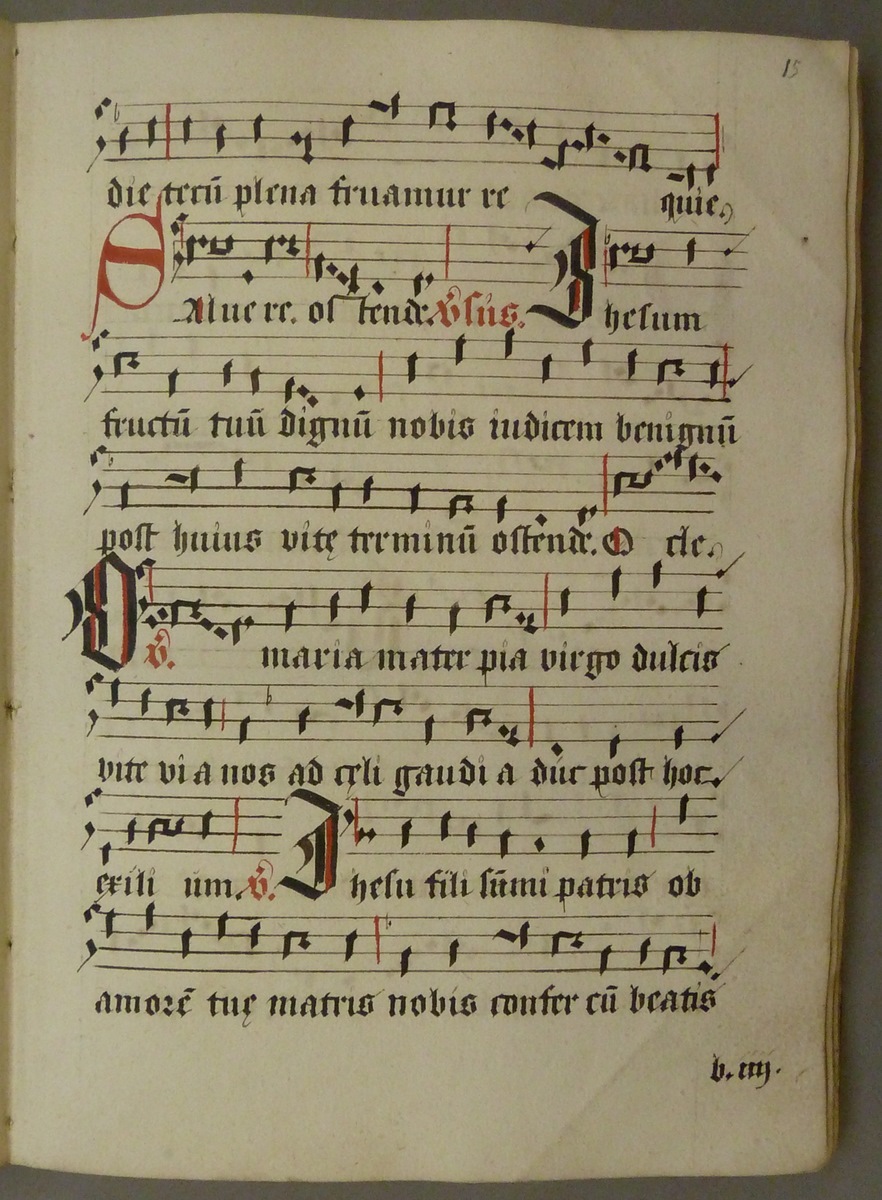 15
die tecū plena fruamur re quie.
SAlue re. os tende. v̄sus. Jhesum
fructū tuū dignū nobis iudicem benignū
post huius vitę terminū ostende. O cle.
v̄. O maria mater pia virgo dulcis
vite via nos ad cęli gaudia duc post hoc
exilium. v̄. Jhesu fili sūmi patris ob
amorē tuę matris nobis confer cū beatis
b. iiij.